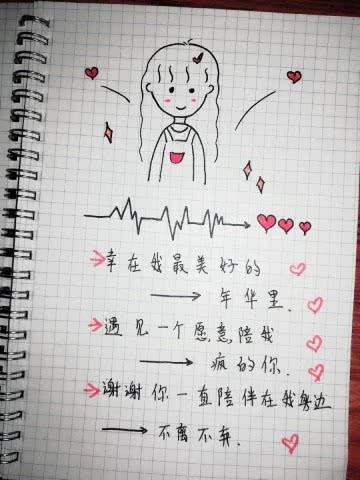 幸在我最美好的
年华里.
遇见一个愿意陪我
疯的你.
谢谢你一直陪伴在我身边
不离不弃.